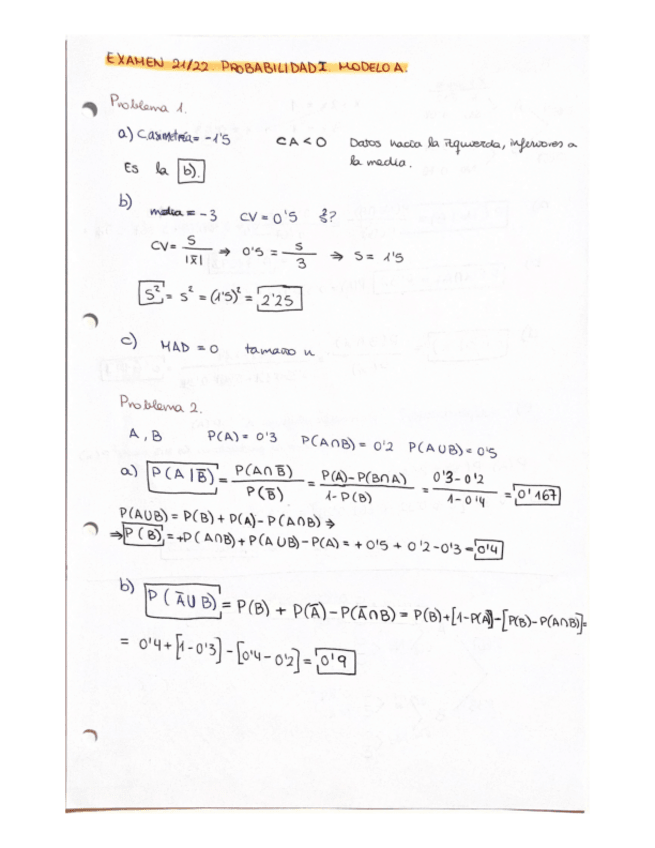 EXAMEN 21/22. PROBABILIDAD I. MODELO A.
Problema 1.
a) C.asimetría = -1'5 CA < 0 Datos hacia la izquierda, inferiores a
la media.
Es la b).
b) media = -3 CV = 0'5 s²?
CV = S / |x̄| ⇒ 0'5 = S / 3 ⇒ S = 1'5
S² = s² = (1'5)² = 2'25
c) MAD = 0 tamaño n
Problema 2.
A, B P(A) = 0'3 P(A∩B) = 0'2 P(A∪B) = 0'5
a) P(A|B̄) = P(A∩B̄) / P(B̄) = P(A)-P(B∩A) / 1-P(B) = 0'3-0'2 / 1-0'4 = 0'167
P(A∪B) = P(B) + P(A) - P(A∩B) ⇒
⇒ P(B) = +P(A∩B) + P(A∪B) - P(A) = +0'5 + 0'2 - 0'3 = 0'4
b) P(Ā∪B) = P(B) + P(Ā) - P(Ā∩B) = P(B) + [1-P(A)] - [P(B)-P(A∩B)] =
= 0'4 + [1-0'3] - [0'4-0'2] = 0'9